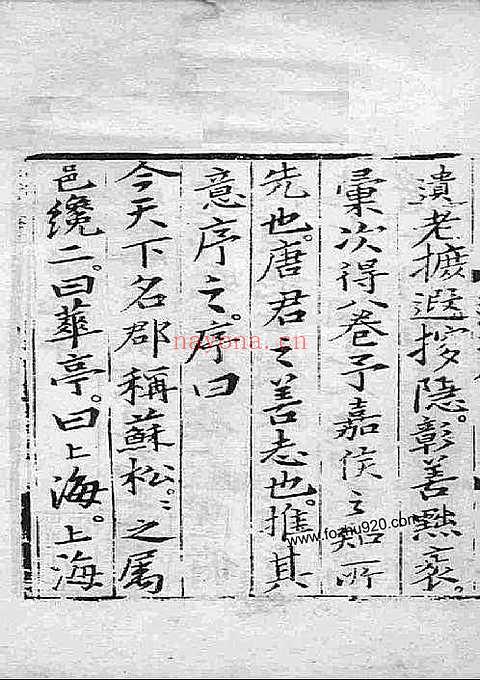 遺老摭遐搜隱。彰善黜衺。
彙次得八卷予嘉侯之知所
先也。唐君之善志也。推其
意序之。序曰
今天下名郡稱蘇松。〻之属
邑纔二。曰華亭。曰上海。上海
nayona.cn
www.fozhu920.com